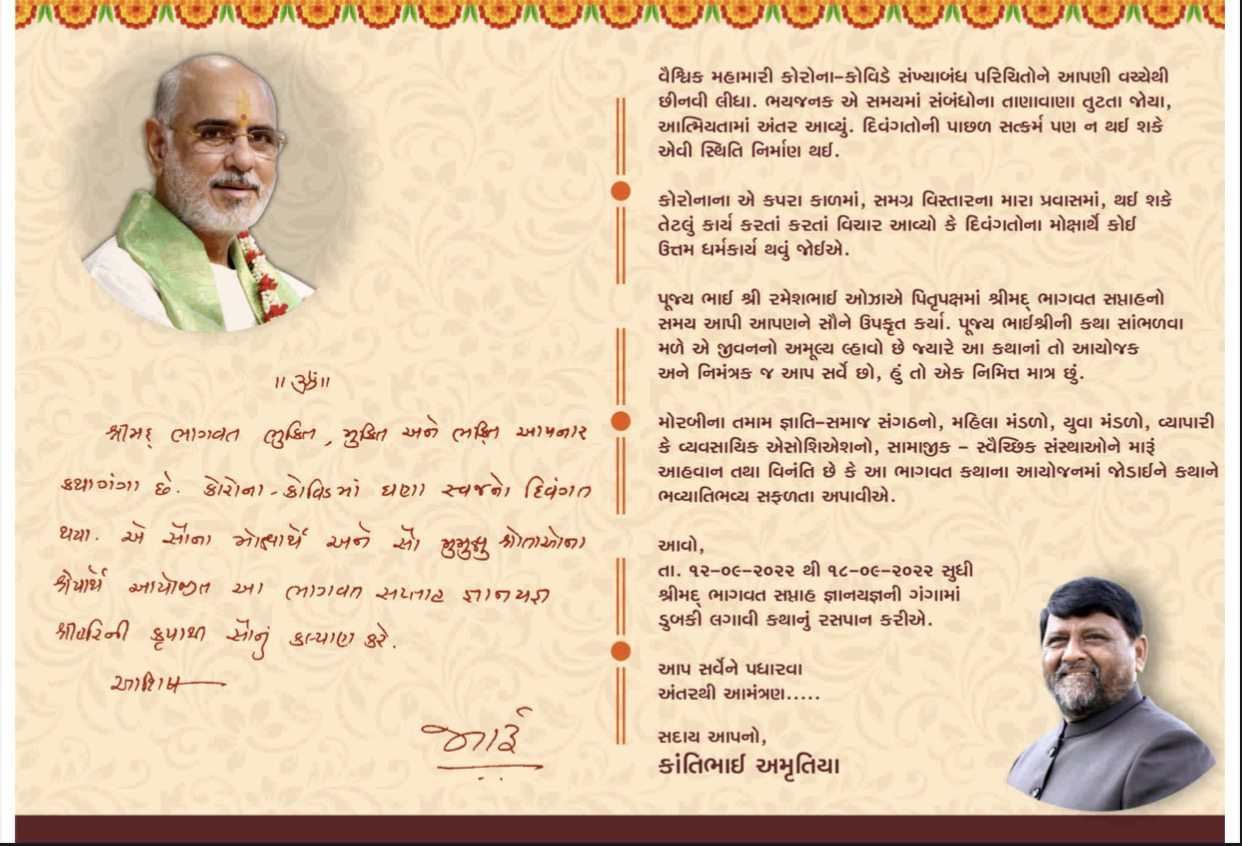 ॥ ૐ ॥
શ્રીમદ્ ભાગવત ભુક્તિ, મુક્તિ અને ભક્તિ આપનાર
કથાગંગા છે. કોરોના-કોવિડમાં ઘણા સ્વજનો દિવંગત
થયા. એ સૌના મોક્ષાર્થે અને સૌ મુમુક્ષુ શ્રોતાઓના
શ્રેયાર્થે આયોજીત આ ભાગવત સપ્તાહ જ્ઞાનયજ્ઞ
શ્રીહરિની કૃપાથી સૌનું કલ્યાણ કરે.
આશિષ
ભાઈ
વૈશ્વિક મહામારી કોરોના-કોવિડે સંખ્યાબંધ પરિચિતોને આપણી વચ્ચેથી
છીનવી લીધા. ભયજનક એ સમયમાં સંબંધોના તાણાવાણા તુટતા જોયા,
આત્મિયતામાં અંતર આવ્યું. દિવંગતોની પાછળ સત્કર્મ પણ ન થઈ શકે
એવી સ્થિતિ નિર્માણ થઈ.
કોરોનાના એ કપરા કાળમાં, સમગ્ર વિસ્તારના મારા પ્રવાસમાં, થઈ શકે
તેટલું કાર્ય કરતાં કરતાં વિચાર આવ્યો કે દિવંગતોના મોક્ષાર્થે કોઈ
ઉત્તમ ધર્મકાર્ય થવું જોઈએ.
પૂજ્ય ભાઈ શ્રી રમેશભાઈ ઓઝાએ પિતૃપક્ષમાં શ્રીમદ્ ભાગવત સપ્તાહનો
સમય આપી આપણને સૌને ઉપકૃત કર્યા. પૂજ્ય ભાઈશ્રીની કથા સાંભળવા
મળે એ જીવનનો અમૂલ્ય લ્હાવો છે જ્યારે આ કથાનાં તો આયોજક
અને નિમંત્રક જ આપ સર્વે છો, હું તો એક નિમિત્ત માત્ર છું.
મોરબીના તમામ જ્ઞાતિ-સમાજ સંગઠનો, મહિલા મંડળો, યુવા મંડળો, વ્યાપારી
કે વ્યવસાયિક એસોશિએશનો, સામાજીક - સ્વૈચ્છિક સંસ્થાઓને મારૂં
આહવાન તથા વિનંતિ છે કે આ ભાગવત કથાના આયોજનમાં જોડાઈને કથાને
ભવ્યાતિભવ્ય સફળતા અપાવીએ.
આવો,
તા. ૧૨-૦૯-૨૦૨૨ થી ૧૮-૦૯-૨૦૨૨ સુધી
શ્રીમદ્ ભાગવત સપ્તાહ જ્ઞાનયજ્ઞની ગંગામાં
ડુબકી લગાવી કથાનું રસપાન કરીએ.
આપ સર્વેને પધારવા
અંતરથી આમંત્રણ.....
સદાય આપનો,
કાંતિભાઈ અમૃતિયા